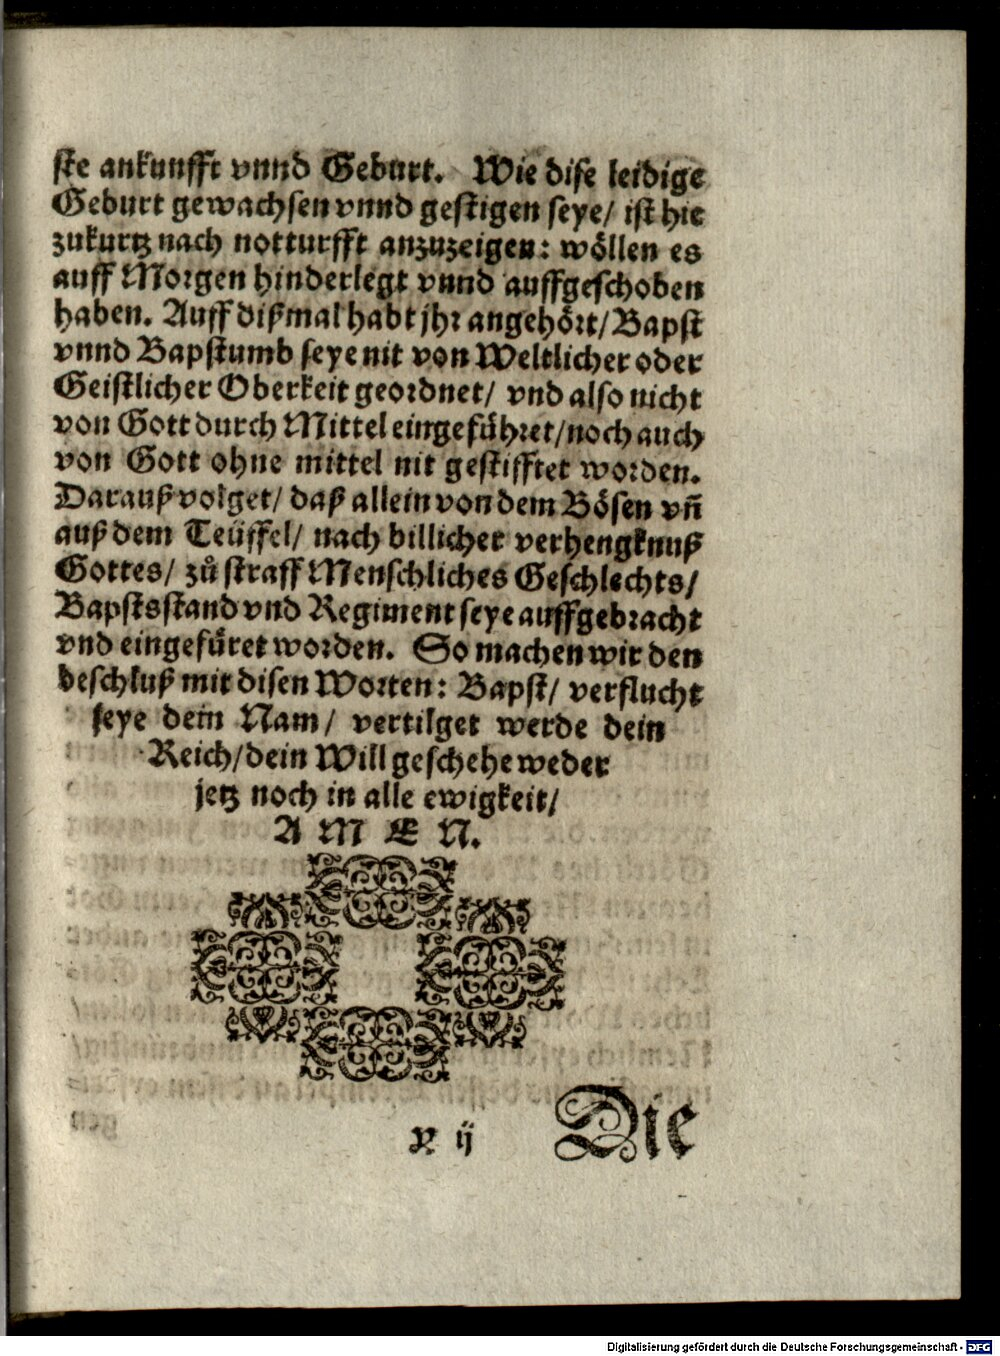 ste ankunfft vnnd Geburt. Wie dise leidige
Geburt gewachsen vnnd gestigen seye/ ist hie
zukurtz nach notturfft anzuzeigen: wöllen es
auff Morgen hinderlegt vnnd auffgeschoben
haben. Auff dißmal habt jhr angehört/ Bapst
vnnd Bapstumb seye nit von Weltlicher oder
Geistlicher Oberkeit geordnet/ vnd also nicht
von Gott durch Mittel eingeführet/ noch auch
von Gott ohne mittel nit gestifftet worden.
Darauß volget/ daß allein von dem Bösen vn̄
auß dem Teüffel/ nach billicher verhengknuß
Gottes/ zů straff Menschliches Geschlechts/
Bapstsstand vnd Regiment seye auffgebracht
vnd eingefüret worden. So machen wir den
beschluß mit disen Worten: Bapst/ verflucht
seye dein Nam/ vertilget werde dein
Reich/ dein Will geschehe weder
jetz noch in alle ewigkeit/
A M E N.
x ij Die
Digitalisierung gefördert durch die Deutsche Forschungsgemeinschaft - DFG